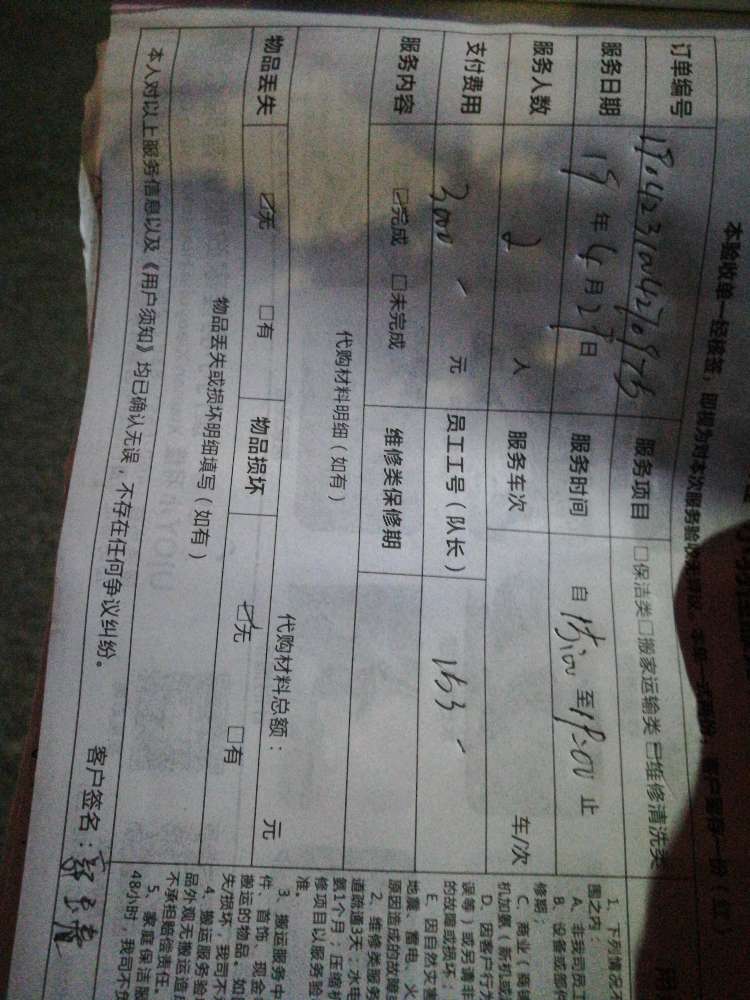 本验收单一经接签，即视为对本次服务验收无异议。本单一式两份：客户留存一份（红）
订单编号
服务项目 □保洁类□搬家运输类☑维修清洗类
服务日期 19年4月27日 服务时间 自15:00至19:00止
服务人数 2 人 服务车次 车/次
支付费用 300 元 员工工号（队长） 153
服务内容 ☑完成 □未完成 维修类保修期
代购材料明细（如有）
代购材料总额： 元
物品丢失 ☑无 □有 物品损坏 ☑无 □有
物品丢失或损坏明细填写（如有）
本人对以上服务信息以及《用户须知》均已确认无误，不存在任何争议纠纷。
客户签名：
用
1、下列情况
围之内：
A、非我司员工
B、设备或部
修期；
C、商业（商铺
机加氨（新机或
D、因客户行为
误等）或另请非
的故障或损坏；
E、因自然灾害
地震、蓄电、火
原因造成的故障
2、维修类服务
道疏通3天；水电
氨1个月；压缩机
修项目以服务验
准。
3、搬运服务中
件、首饰、现金
搬运的物品。如
失/损坏，我司不
4、搬运服务验
品外观无搬运造
不承担赔偿责任。
5、家庭保洁服
48小时，我司不负